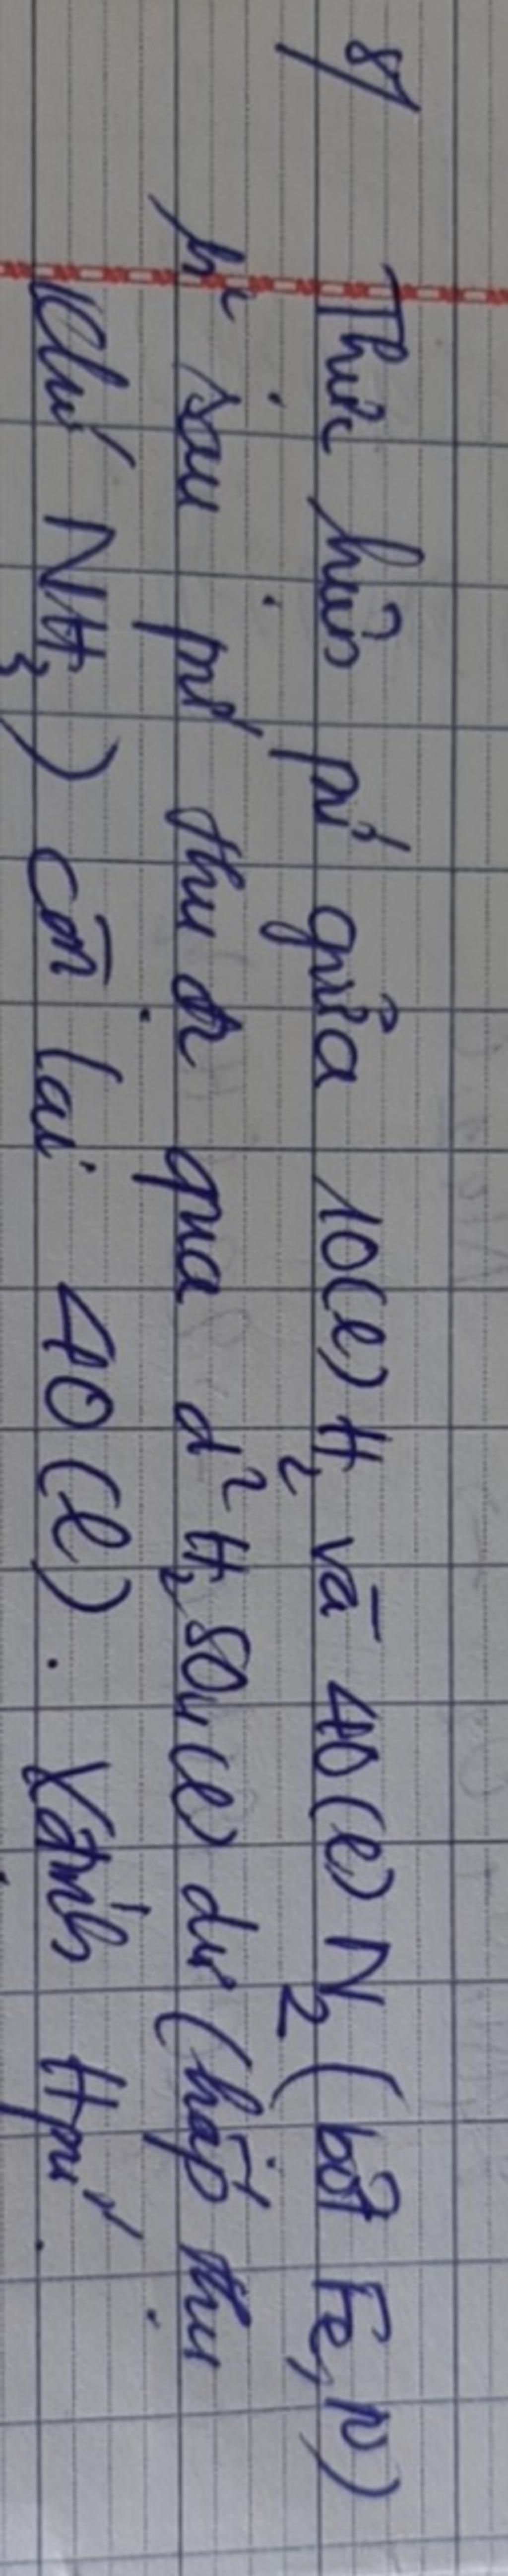 8/
Thực hiện pứ giữa 10(l) H₂ và 40(l) N₂ (bột Fe, p)
h² sau pứ thu đc qua d² H₂SO₄(l) dư (hấp thụ
khí NH₃) còn lại 40(l). Vậy tính Hpứ.